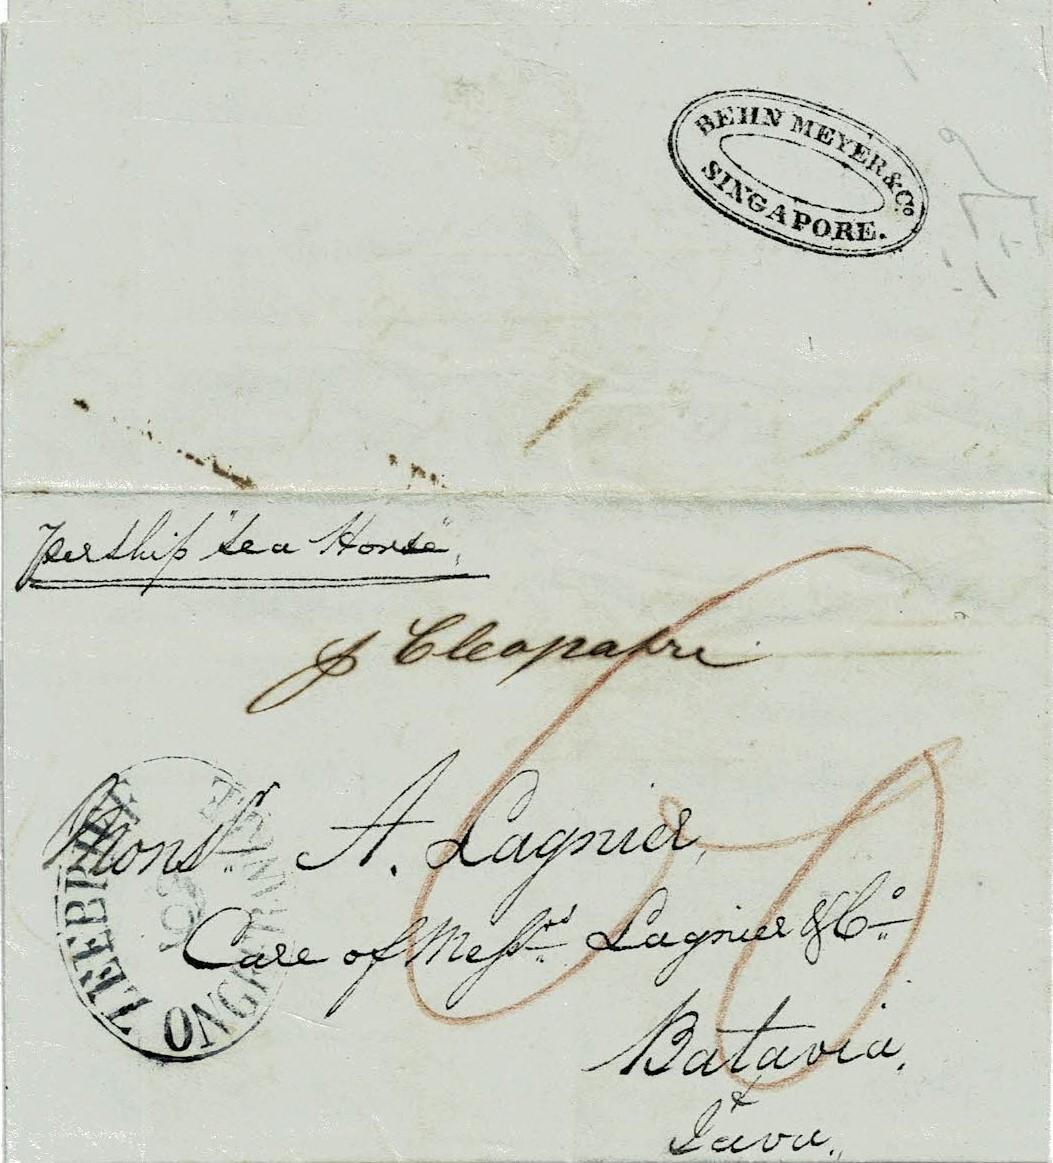 BEHN MEYER & Co.
SINGAPORE.
per ship "Sea Horse",
p Cleopatre
Monsr. A. Lagnier,
Care of Messrs. Lagnier & Co.
Batavia.
Java.
ZEEBRIEF
ONGEFRANK
60